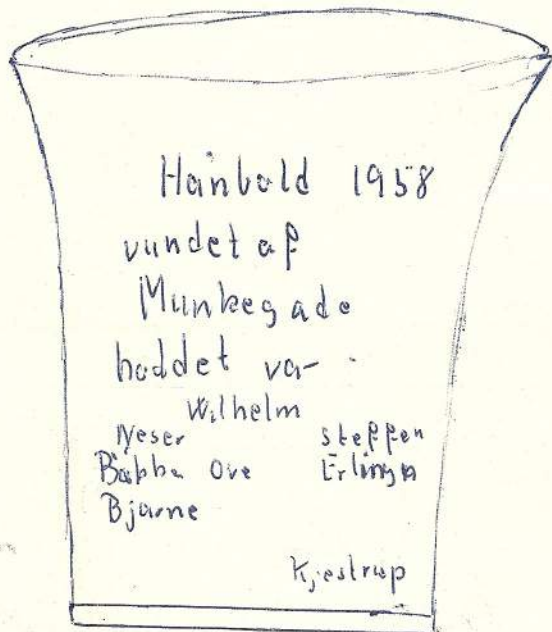 Hånbold 1958
vundet af
Munkegade
hoddet va-
Wilhelm
Neser steffen
Ove Erlingn
Bjarne
Kjestrup